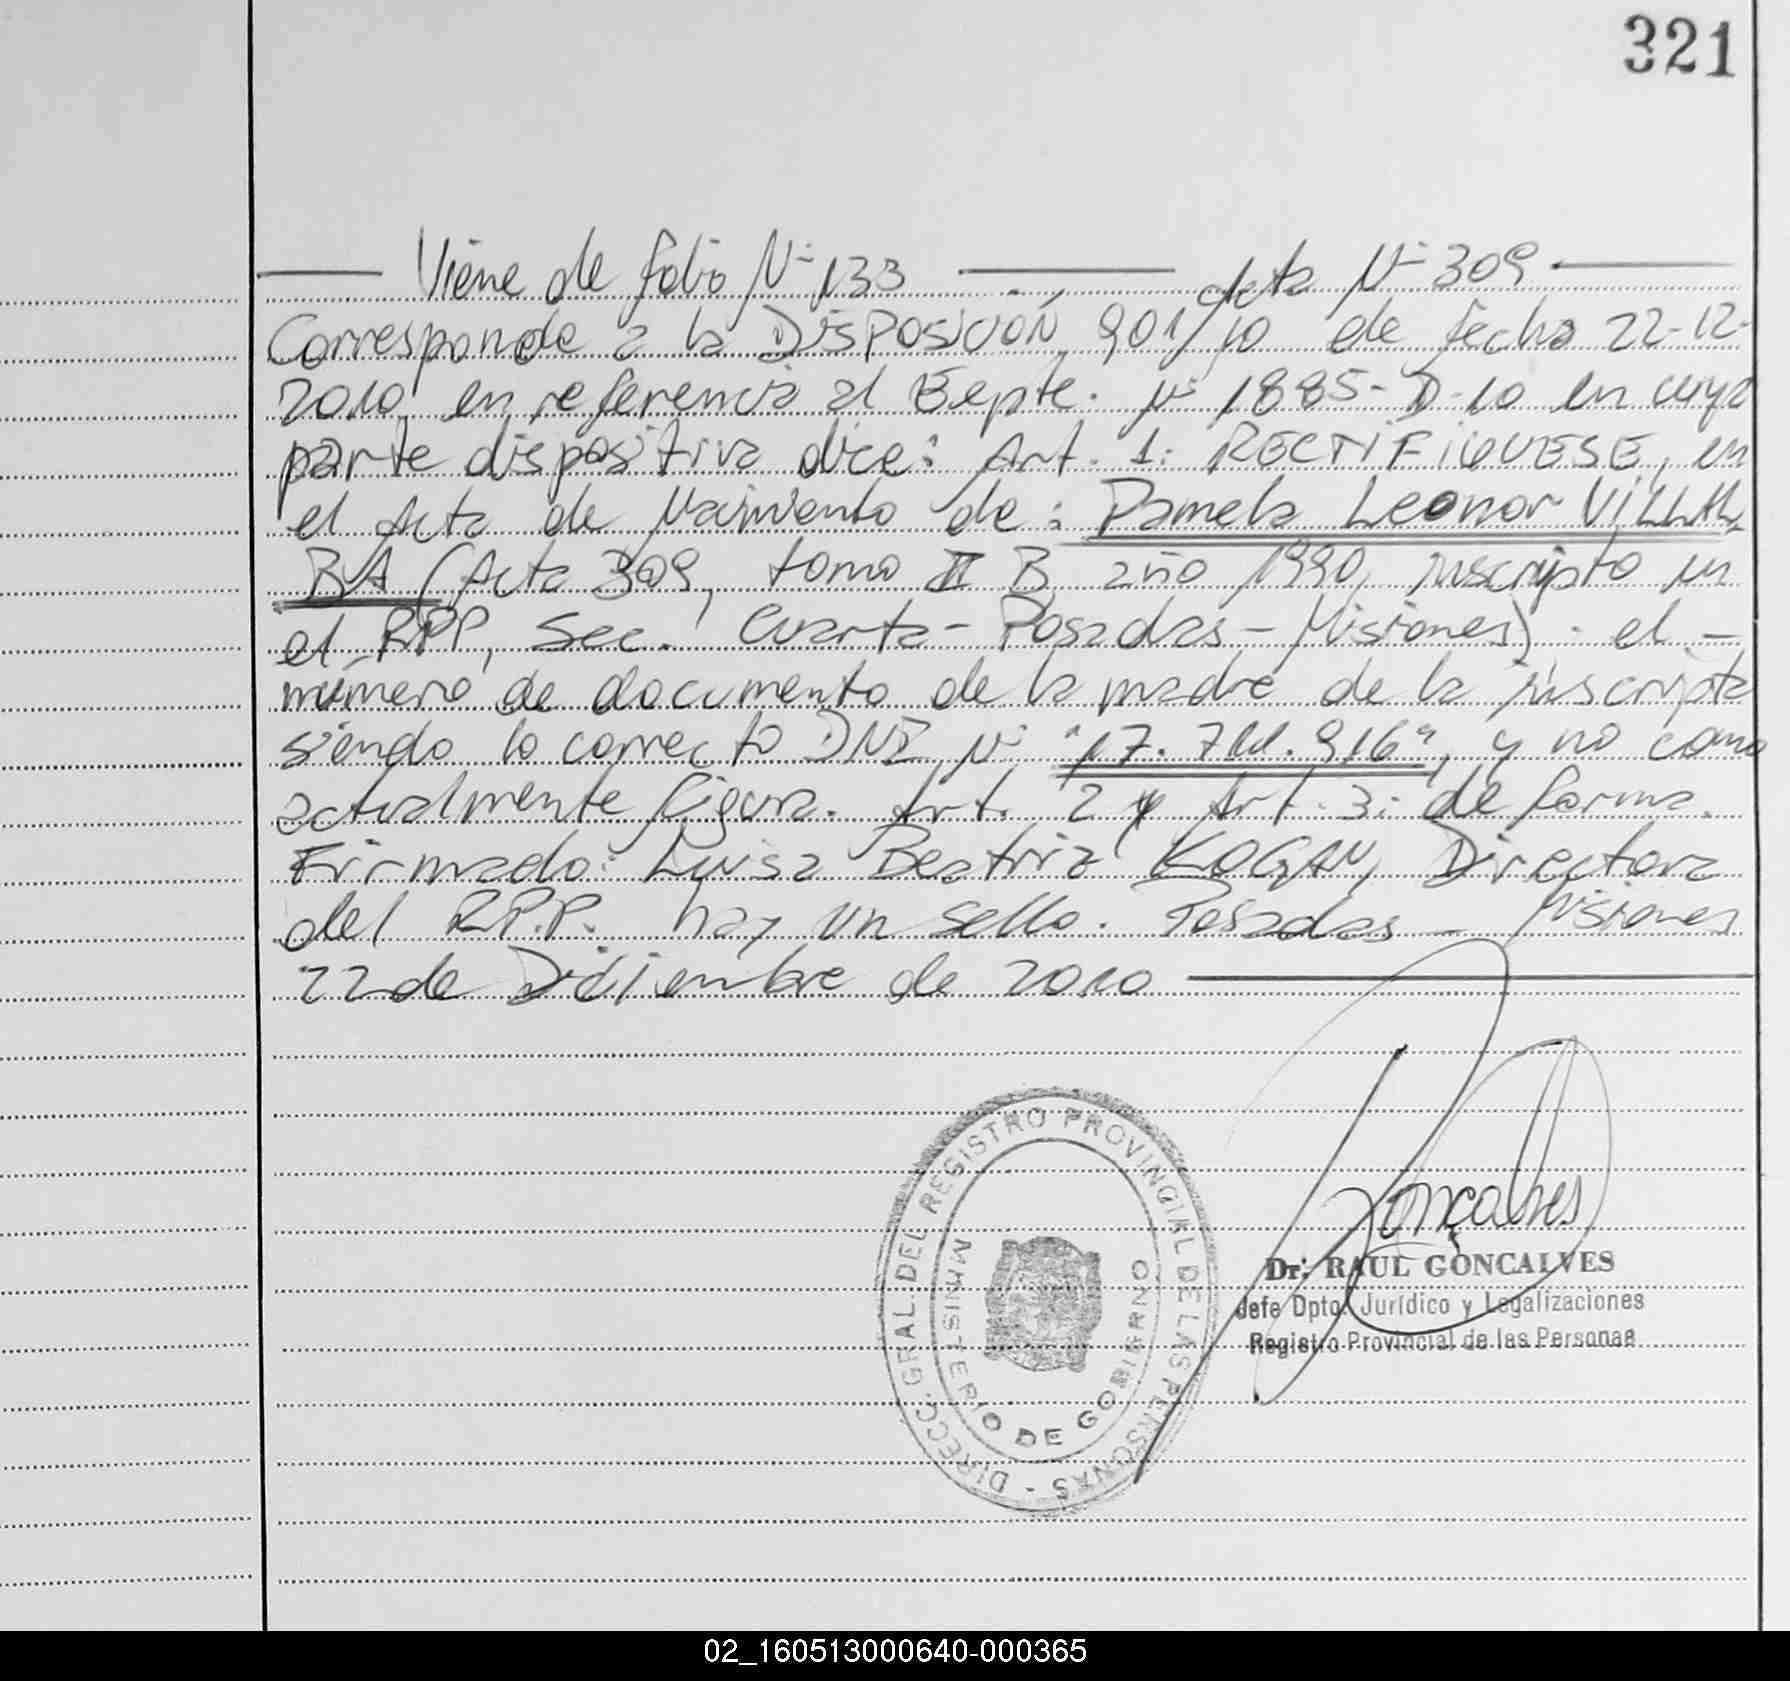 321
Viene de folio Nº 133 acta Nº 309
Corresponde a la DISPOSICIÓN 901/10 de fecha 22-12-
2010 en referencia al Expte. Nº 1885-D-10 en cuya
parte dispositiva dice: Art. 1: RECTIFIQUESE, en
el Acta de Nacimiento de: Pamela Leonor VILLAL
BA (Acta 309, tomo II B año 1990, inscripto en
el RPP, Sec. Cuarta-Posadas-Misiones) el -
número de documento de la madre de la inscripta
siendo lo correcto DNI Nº "17. .916", y no como
actualmente figura. Art. 2 y Art. 3: de forma.
Firmado: Luisa Beatriz KOGAN, Directora
del R.P.P. hay un sello. Posadas - Misiones
22 de Diciembre de 2010
DIRECC. GRAL. DEL REGISTRO PROVINCIAL DE LAS PERSONAS -
MINISTERIO DE GOBIERNO
Gonçalves
Dr. RAUL GONCALVES
Jefe Dpto. Jurídico y Legalizaciones
Registro Provincial de las Personas
02_160513000640-000365